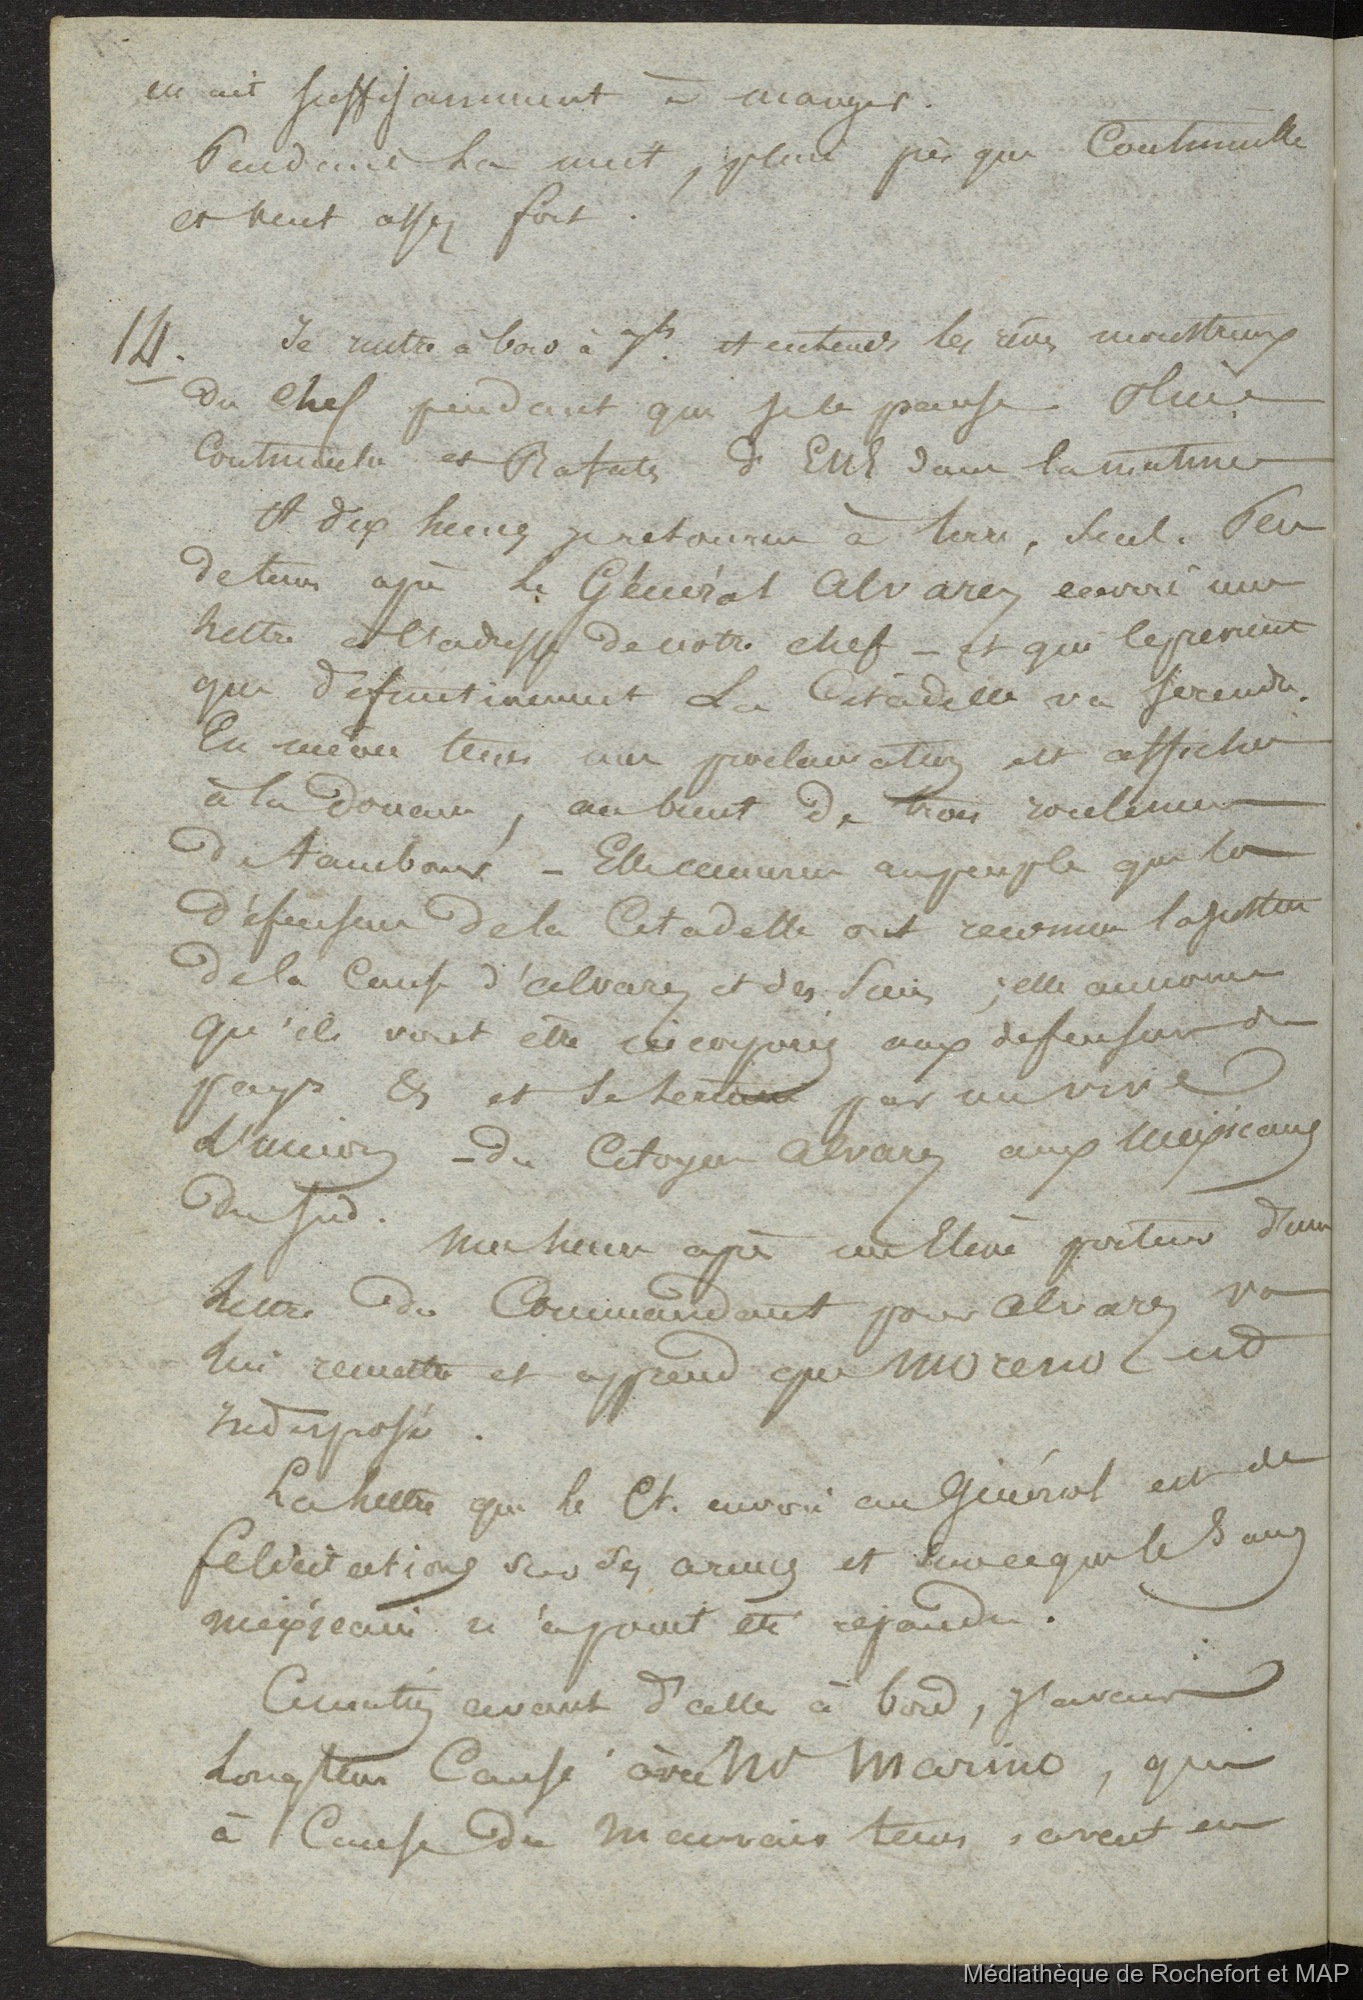 en ait suffisamment à manger.
Pendant la nuit, pluie presque Continuelle
et vent assez fort.
14. Je rentre à bord à 7h. et entends les rêves monstrueux
du chef pendant que je le panse. Pluie
Continuelle et Rafales d'ENE dans la matinée
A dix heures je retourne à terre, seul. Peu
de tems après le Général Alvarez envoie une
lettre à l'adresse de notre chef - et qui le prévient
que définitivement La Citadelle va se rendre.
En même tems une proclamation est affichée
à la douane, au bruit de trois roulemens
de tambours - Elle annonce au peuple que les
défenseurs de la Citadelle ont reconnu la justice
de la cause d'alvarez et des siens ; elle annonce
qu'ils vont être incorporés aux defenseurs du
pays & et se termine par un vive
L'union - du Citoyen Alvarez aux mexicains
du sud.
Une heure après un Elève porteur d'une
lettre du Commandant pour Alvarez va
lui remettre et apprend que Moreno est
indisposé.
La lettre que le Ct. envoie au Général est de
felicitations sur ses armes et sur ce que le Sang
mexicain n'a point été repandu.
avant d'aller à bord, j'avais
Longtems Causé avec Mr Marino, qui
à Cause du mauvais tems, avait eu